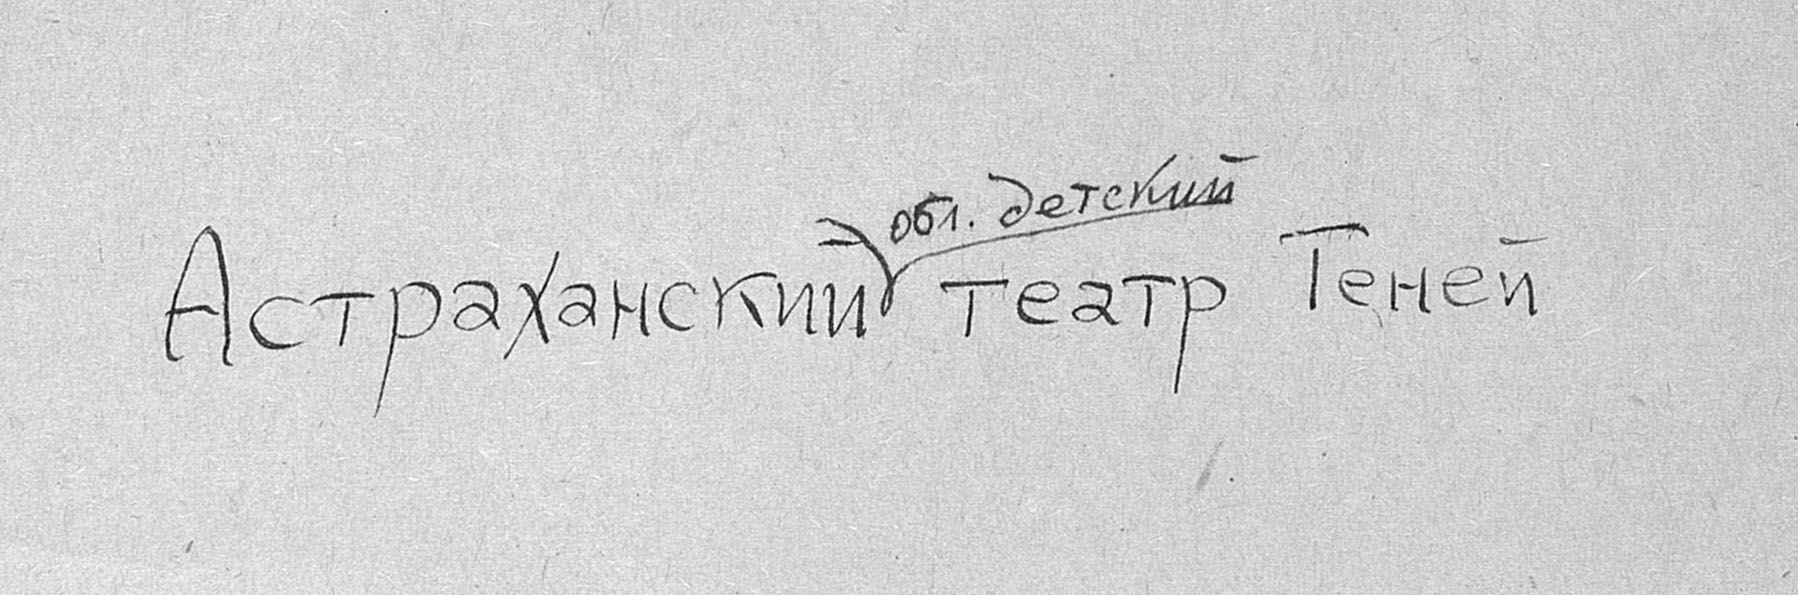 обл. детский
Астраханский театр Теней